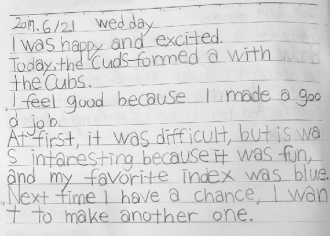 2017. 6/21 wed day
I was happy and excited.
Today, the Cuds formed a with
the Cubs.
I feel good because I made a goo
d job.
At first, it was difficult, but is wa
s intaresting because it was fun,
and my favorite index was blue.
Next time I have a chance, I wan
t to make another one.